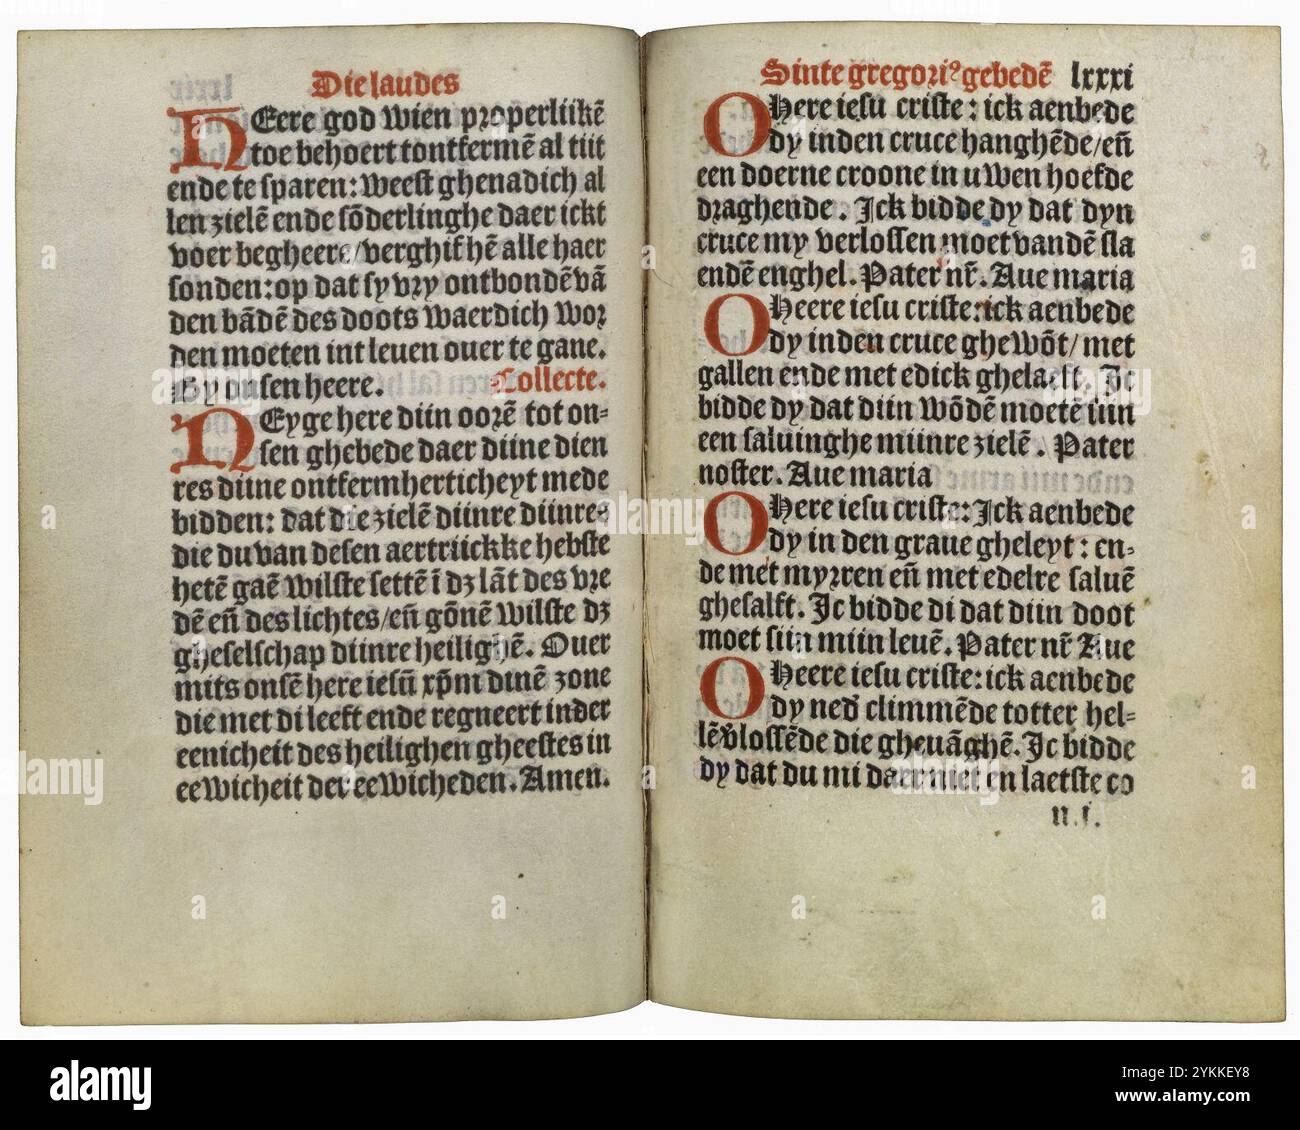 Die laudes
HEere god wien properliikē
toe behoert tontfermē al tiit
ende te sparen: weest ghenadich al
len zielē ende sōderlinghe daer ickt
voer begheere/verghif hē alle haer
sonden: op dat sy vry ontbondē vā
den bādē des doots waerdich wor
den moeten int leuen ouer te gane.
By onsen heere. Collecte.
NEyge here diin oorē tot on=
sen ghebede daer diine dien
res diine ontfermherticheyt mede
bidden: dat die zielē diinre diinre=
die du van desen aertriickke hebste
hetē gaē wilste settē ī dz lāt des vre
dē eñ des lichtes/eñ gōnē wilste dz
gheselschap diinre heilighē. Ouer
mits onsē here iesū xp̄m dinē zone
die met di leeft ende regneert in der
eenicheit des heilighen gheestes in
eewicheit der eewicheden. Amen.
Sinte gregoriꝰ gebedē lxxxi
OHere iesu criste: ick aenbede
dy in den cruce hanghēde/eñ
een doerne croone in uwen hoefde
draghende. Ick bidde dy dat dyn
cruce my verlossen moet van dē sla
endē enghel. Pater nr̄. Aue maria
OHeere iesu criste: ick aenbede
dy in den cruce ghewōt/met
gallen ende met edick ghelaeft. Ic
bidde dy dat diin wōdē moetē siin
een saluinghe miinre zielē. Pater
noster. Aue maria
OHere iesu criste: Ick aenbede
dy in den graue gheleyt: en=
de met myrren eñ met edelre saluē
ghesalft. Ic bidde di dat diin doot
moet siin miin leuē. Pater nr̄ Aue
OHeere iesu criste: ick aenbede
dy ned̄ climmēde totter hel=
lē v̄lossēde die gheuāghē. Ic bidde
dy dat du mi daer niet en laetste co
n.i.
alamy
Image ID: 2YKKEY8
www.alamy.com